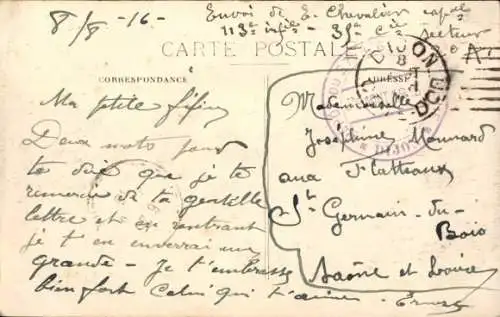 8/8 -16- Envoi de E. Chevalier capal
113e infie - 35e Cie secteur
CARTE POSTALE
CORRESPONDANCE
ADRESSE
DIJON
Ma petite fifine
Deux mots pour
te dire que je te
remercie de ta gentille
lettre et en rentrant
je t'en enverrai une
grande - Je t'embrasse
bien fort Celui qui t'aime - Ernest
Mademoiselle
Joséphine Monnard
aux Flatteaux
St Germain-du-
Bois
Saône et Loire